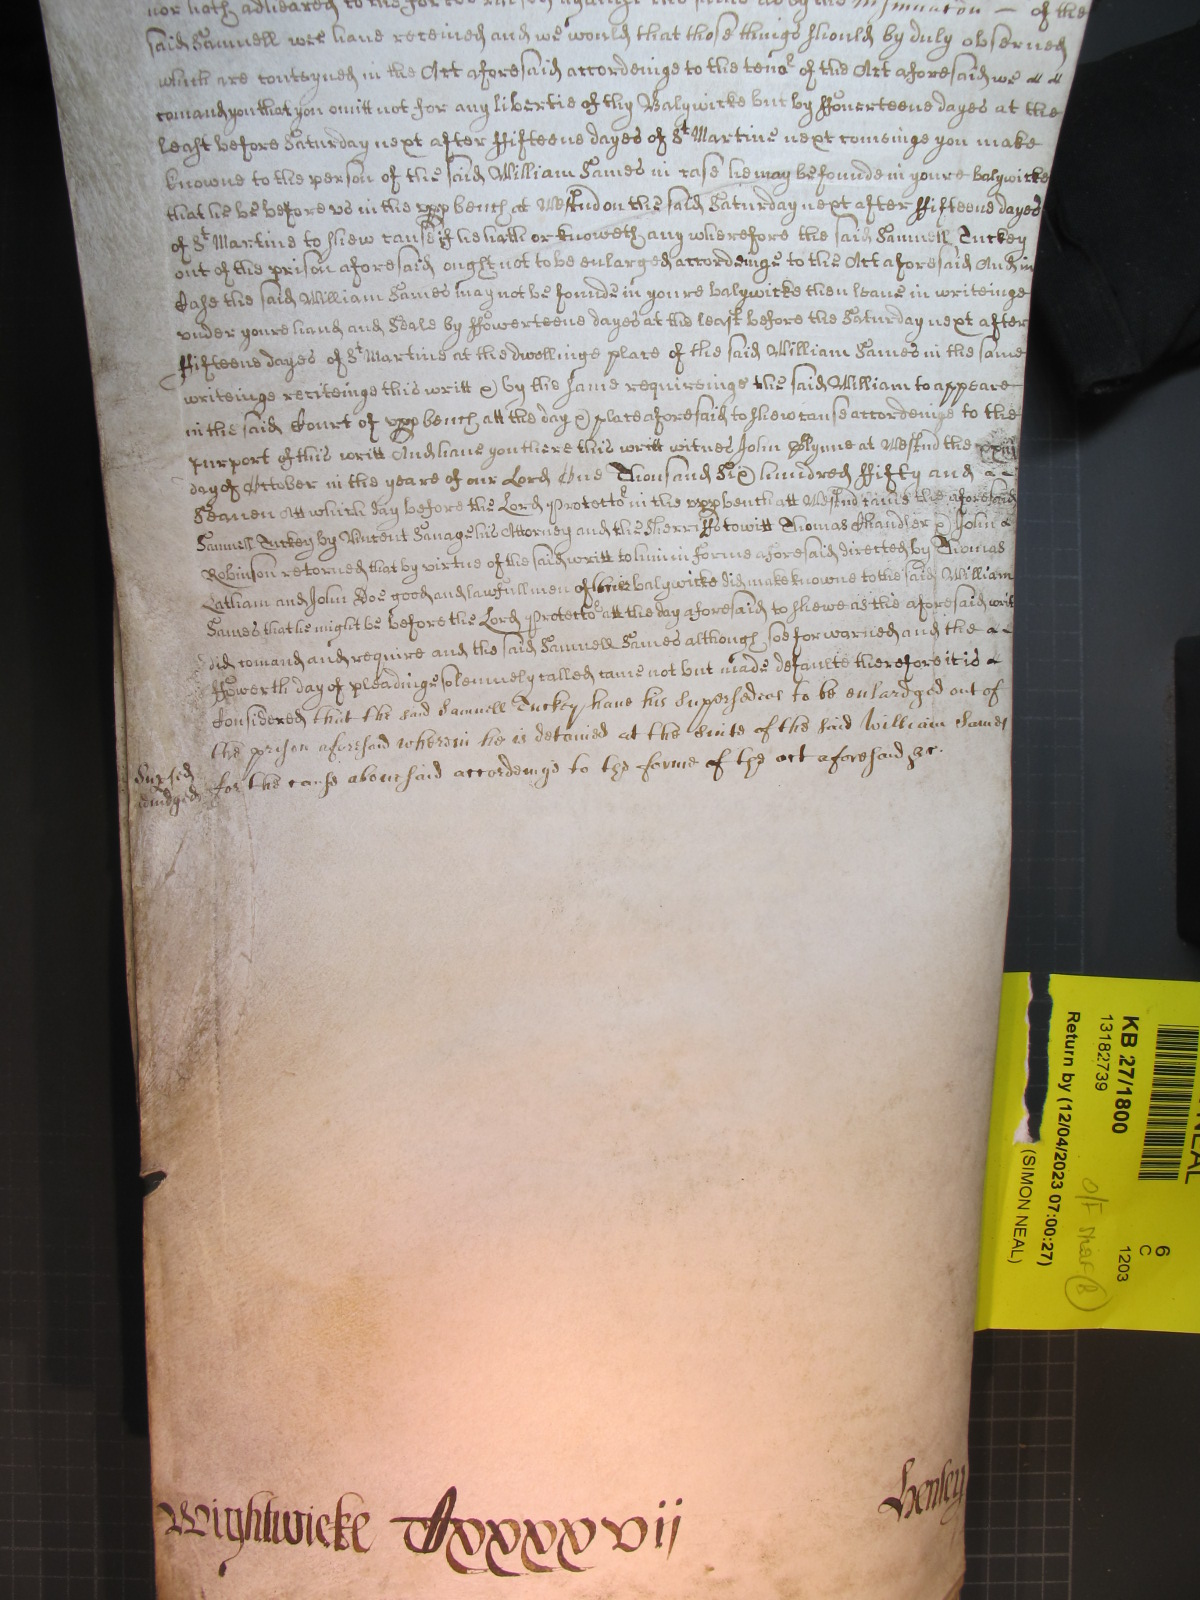 nor hath adheared to the forces raised against the same as by the Insinuacon — of the
said Samuell wee have received and we would that those things should by duly observed
which are conteyned in the Act aforesaid accordeinge to the teno:r of the Act aforesaid we
comand you that you omitt not for any libertie of thy Balywicke but by ffourteene dayes at the
least before Saturday next after ffifteene dayes of S:t Martine next comeinge you make
knowne to the person of the said William Sames in case he may be founde in youre balywicke
that he be before vs in the vpp bench at Westm:d on the said Saturday next after ffifteene dayes
of S:t Martine to shew cause if he hath or knoweth any wherefore the said Samuell Tuckey
out of the prison aforesaid ought not to be enlarged accordeinge to the Act aforesaid And in
Case the said William Sames may not be founde in youre balywicke then leave in writeinge
vnder youre hand and Seale by ffowerteene dayes at the least before the Saturday next after
ffifteene dayes of S:t Martine at the dwellinge place of the said William Sames in the same
writeinge reciteinge this writt & by the same requireinge the said William to appeare
in the said Court of vpp bench att the day & place aforesaid to shew cause accordeinge to the
purport of this writt And have you there this writt witnes John Glynne at Westmd the xxiij
day of October in the yeare of our Lord One Thousand Six hundred ffifty and
Seaven Att which day before the Lord Protecto:r in the vpp bench att Westmd came the aforesaid
Samuell Tuckey by Vincent Sanage his Attorney and the Sherriffs to witt Thomas Chandler & John
Robinson retorned that by virtue of the said writt to him in forme aforesaid directed by Thomas
Latham and John Doe good and lawfull men of his balywicke did make knowne to the said William
Sames that he might be before the Lord Protecto:r att the day aforesaid to shewe as the aforesaid writt
did comand and require and the said Samuell Sames although soe forwarned and the
ffowerth day of pleadinge solemnely called came not but made defaulte therefore it is
Considered that the said Samuell Tuckey have his supersedeas to be enlardged out of
the prison aforesaid wherein he is detained at the suite of the said William Sames
for the cause abovesaid accordeinge to the forme of the act aforesaid &c.
Wightwicke
xxxxvij
Henley
KB 27/1800
13182739
Return by (12/04/2023 07:00:27)
(SIMON NEAL)
6
C
1203
NEAL